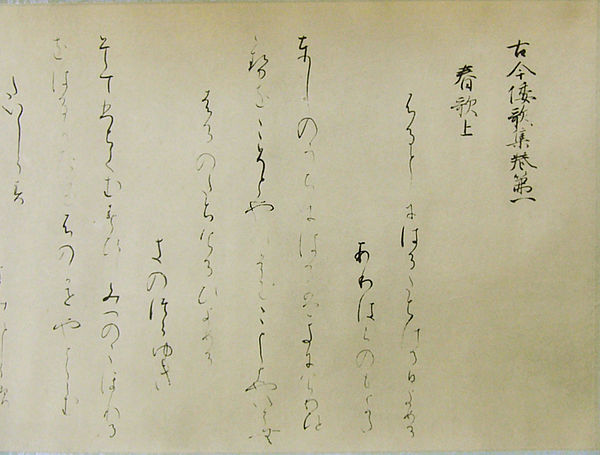 古今倭歌集巻第一
春歌上
ふるとしにはるたちける日よめる
ありはらのもとかた
としのうちにはるはきにけりひととせ
をこそとやいはむことしとやいはむ
はるのたちける日よめる
きのつらゆき
そてひちてむすひしみつのこほれる
をはるたつけふのかせやとくらむ
たいしらす